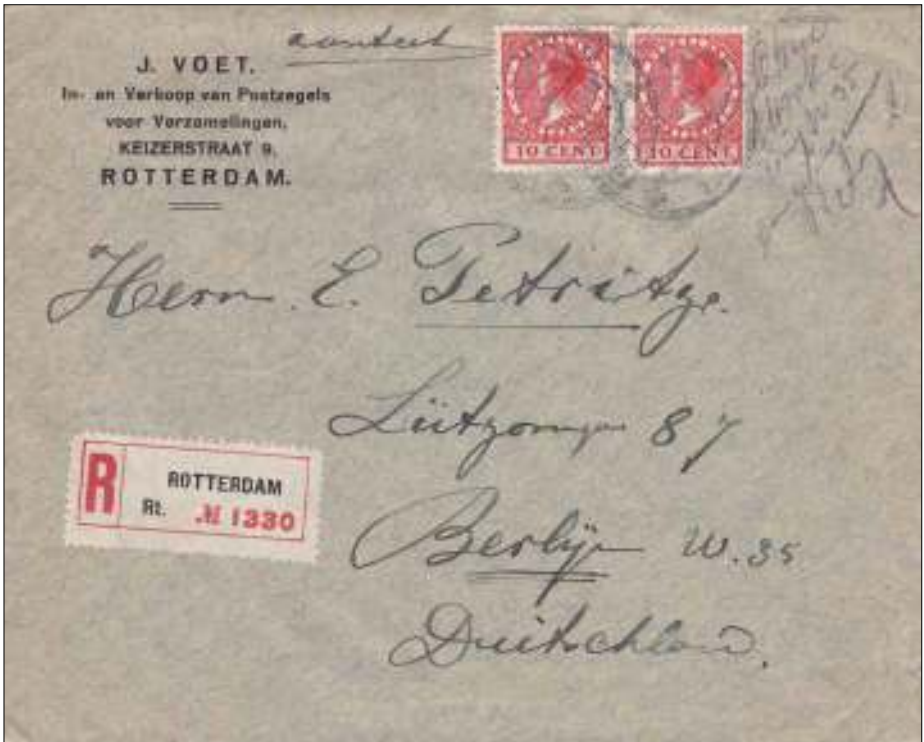 J. VOET.
In- en Verkoop van Postzegels
voor Verzamelingen,
KEIZERSTRAAT 9.
ROTTERDAM.
10 CENT
10 CENT
Herrn E. Petritze.
87
Berlijn W. 35
Duitschland.
R
ROTTERDAM
Rt. № 1330